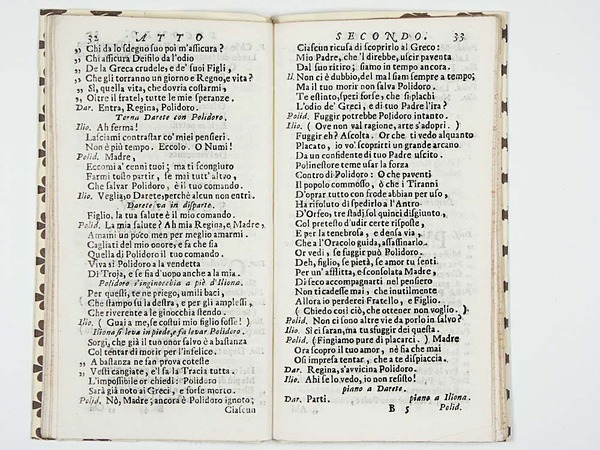 32 ATTO
„ Chi da lo sdegno suo poi m'assicura?
„ Chi assicura Deifilo da l'odio
„ De la Greca crudele, e de' suoi Figli,
„ Che gli torranno un giorno e Regno, e vita?
„ Sì, quella vita, che dovria costarmi,
„ Oltre il fratel, tutte le mie speranze.
Dar. Entra, Regina, Polidoro.
Torna Darete con Polidoro.
Ilio. Ah ferma!
Lasciami contrastar co' miei pensieri.
Non è più tempo. Eccolo. O Numi!
Polid. Madre,
Eccomi a' cenni tuoi; ma ti scongiuro
Farmi tosto partir, se mai tutt' altro,
Che salvar Polidoro, è il tuo comando.
Ilio. Veglia, o Darete, perchè alcun non entri.
Darete va in disparte.
Figlio, la tua salute è il mio comando.
Polid. La mia salute? Ah mia Regina, e Madre,
Amami un poco men per meglio amarmi.
Cagliati del mio onore, e fa che sia
Quella di Polidoro il tuo comando.
Viva sì Polidoro a la vendetta
Di Troja, e se fia d'uopo anche a la mia.
Polidoro s'inginocchia a piè d'Iliona.
Per questi, te ne priego, umili baci,
Che stampo su la destra, e per gli amplessi,
Che riverente a le ginocchia stendo.
Ilio. (Guai a me, se costui mio figlio fosse!)
Iliona si leva in piede, e fa levar Polidoro.
Sorgi, che già il tuo onor salvo è a bastanza
Col tentar di morir per l'infelice.
„ A bastanza ne fan prova coteste
„ Vesti cangiate, e'l sa la Tracia tutta.
L'impossibile or chiedi: Polidoro
Sarà già noto ai Greci, e forse morto.
Polid. Nò, Madre; ancora è Polidoro ignoto;
Ciascun
SECONDO. 33
Ciascun ricusa di scoprirlo al Greco:
Mio Padre, che'l direbbe, uscir paventa
Dal suo ritiro; siamo in tempo ancora.
Il. Non ci è dubbio, del mal siam sempre a tempo;
Ma il tuo morir non salva Polidoro.
Te estinto, speri forse, che si plachi
L'odio de' Greci, e di tuo Padre l'ira?
Polid. Fuggir potrebbe Polidoro intanto.
Ilio. (Ove non val ragione, arte s'adopri.)
Fuggir eh? Ascolta. Or che ti vedo alquanto
Placato, io vo' scoprirti un grande arcano
Da un confidente di tuo Padre uscito.
Polinestore teme usar la forza
Contro di Polidoro: O che paventi
Il popolo commosso, ò che i Tiranni
D'oprar tutto con frode abbian per uso,
Ha risoluto di spedirlo a l'Antro
D'Orfeo, tre stadj sol quinci disgiunto,
Col pretesto d'udir certe risposte,
E per la tenebrosa, e densa via,
Che a l'Oracolo guida, assassinarlo.
Or vedi, se fuggir può Polidoro.
Deh, figlio, se pietà, se amor tu senti
Per un' afflitta, e sconsolata Madre,
Di seco accompagnarti nel pensiero
Non ti cadesse mai, che inutilmente
Allora io perderei Fratello, e Figlio.
(Chiedo così ciò, che ottener non voglio.)
Polid. Non ci sono altre vie da porlo in salvo?
Ilio. Sì ci saran, ma tu suggir dei questa.
Polid. (Fingiamo pure di placarci.) Madre
Ora scopro il tuo amor, nè fia che mai
Osi impresa tentar, che a te dispiaccia.
Dar. Regina, s'avvicina Polidoro.
Ilio. Ahi se lo vedo, io non resisto!
piano a Darete.
Dar. Parti. piano a Iliona.
B 5 Polid.